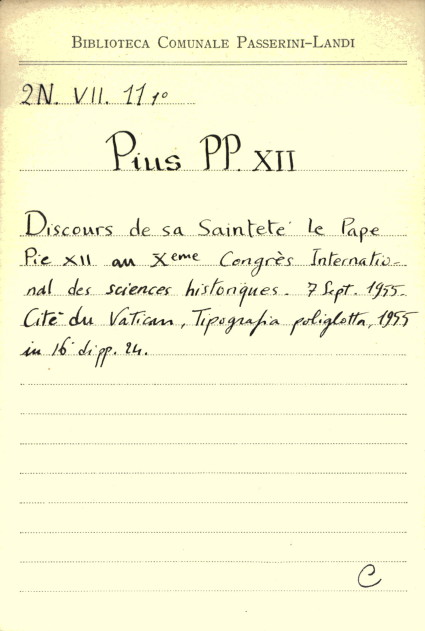 BIBLIOTECA COMUNALE PASSERINI-LANDI
2N. VII. 11 1°
Pius PP. XII
Discours de sa Sainteté le Pape
Pie XII au Xeme Congrès Internatio-
nal des sciences historiques. 7 Sept. 1955.
Cité du Vatican, Tipografia poliglotta, 1955
in 16° di pp. 24.
C